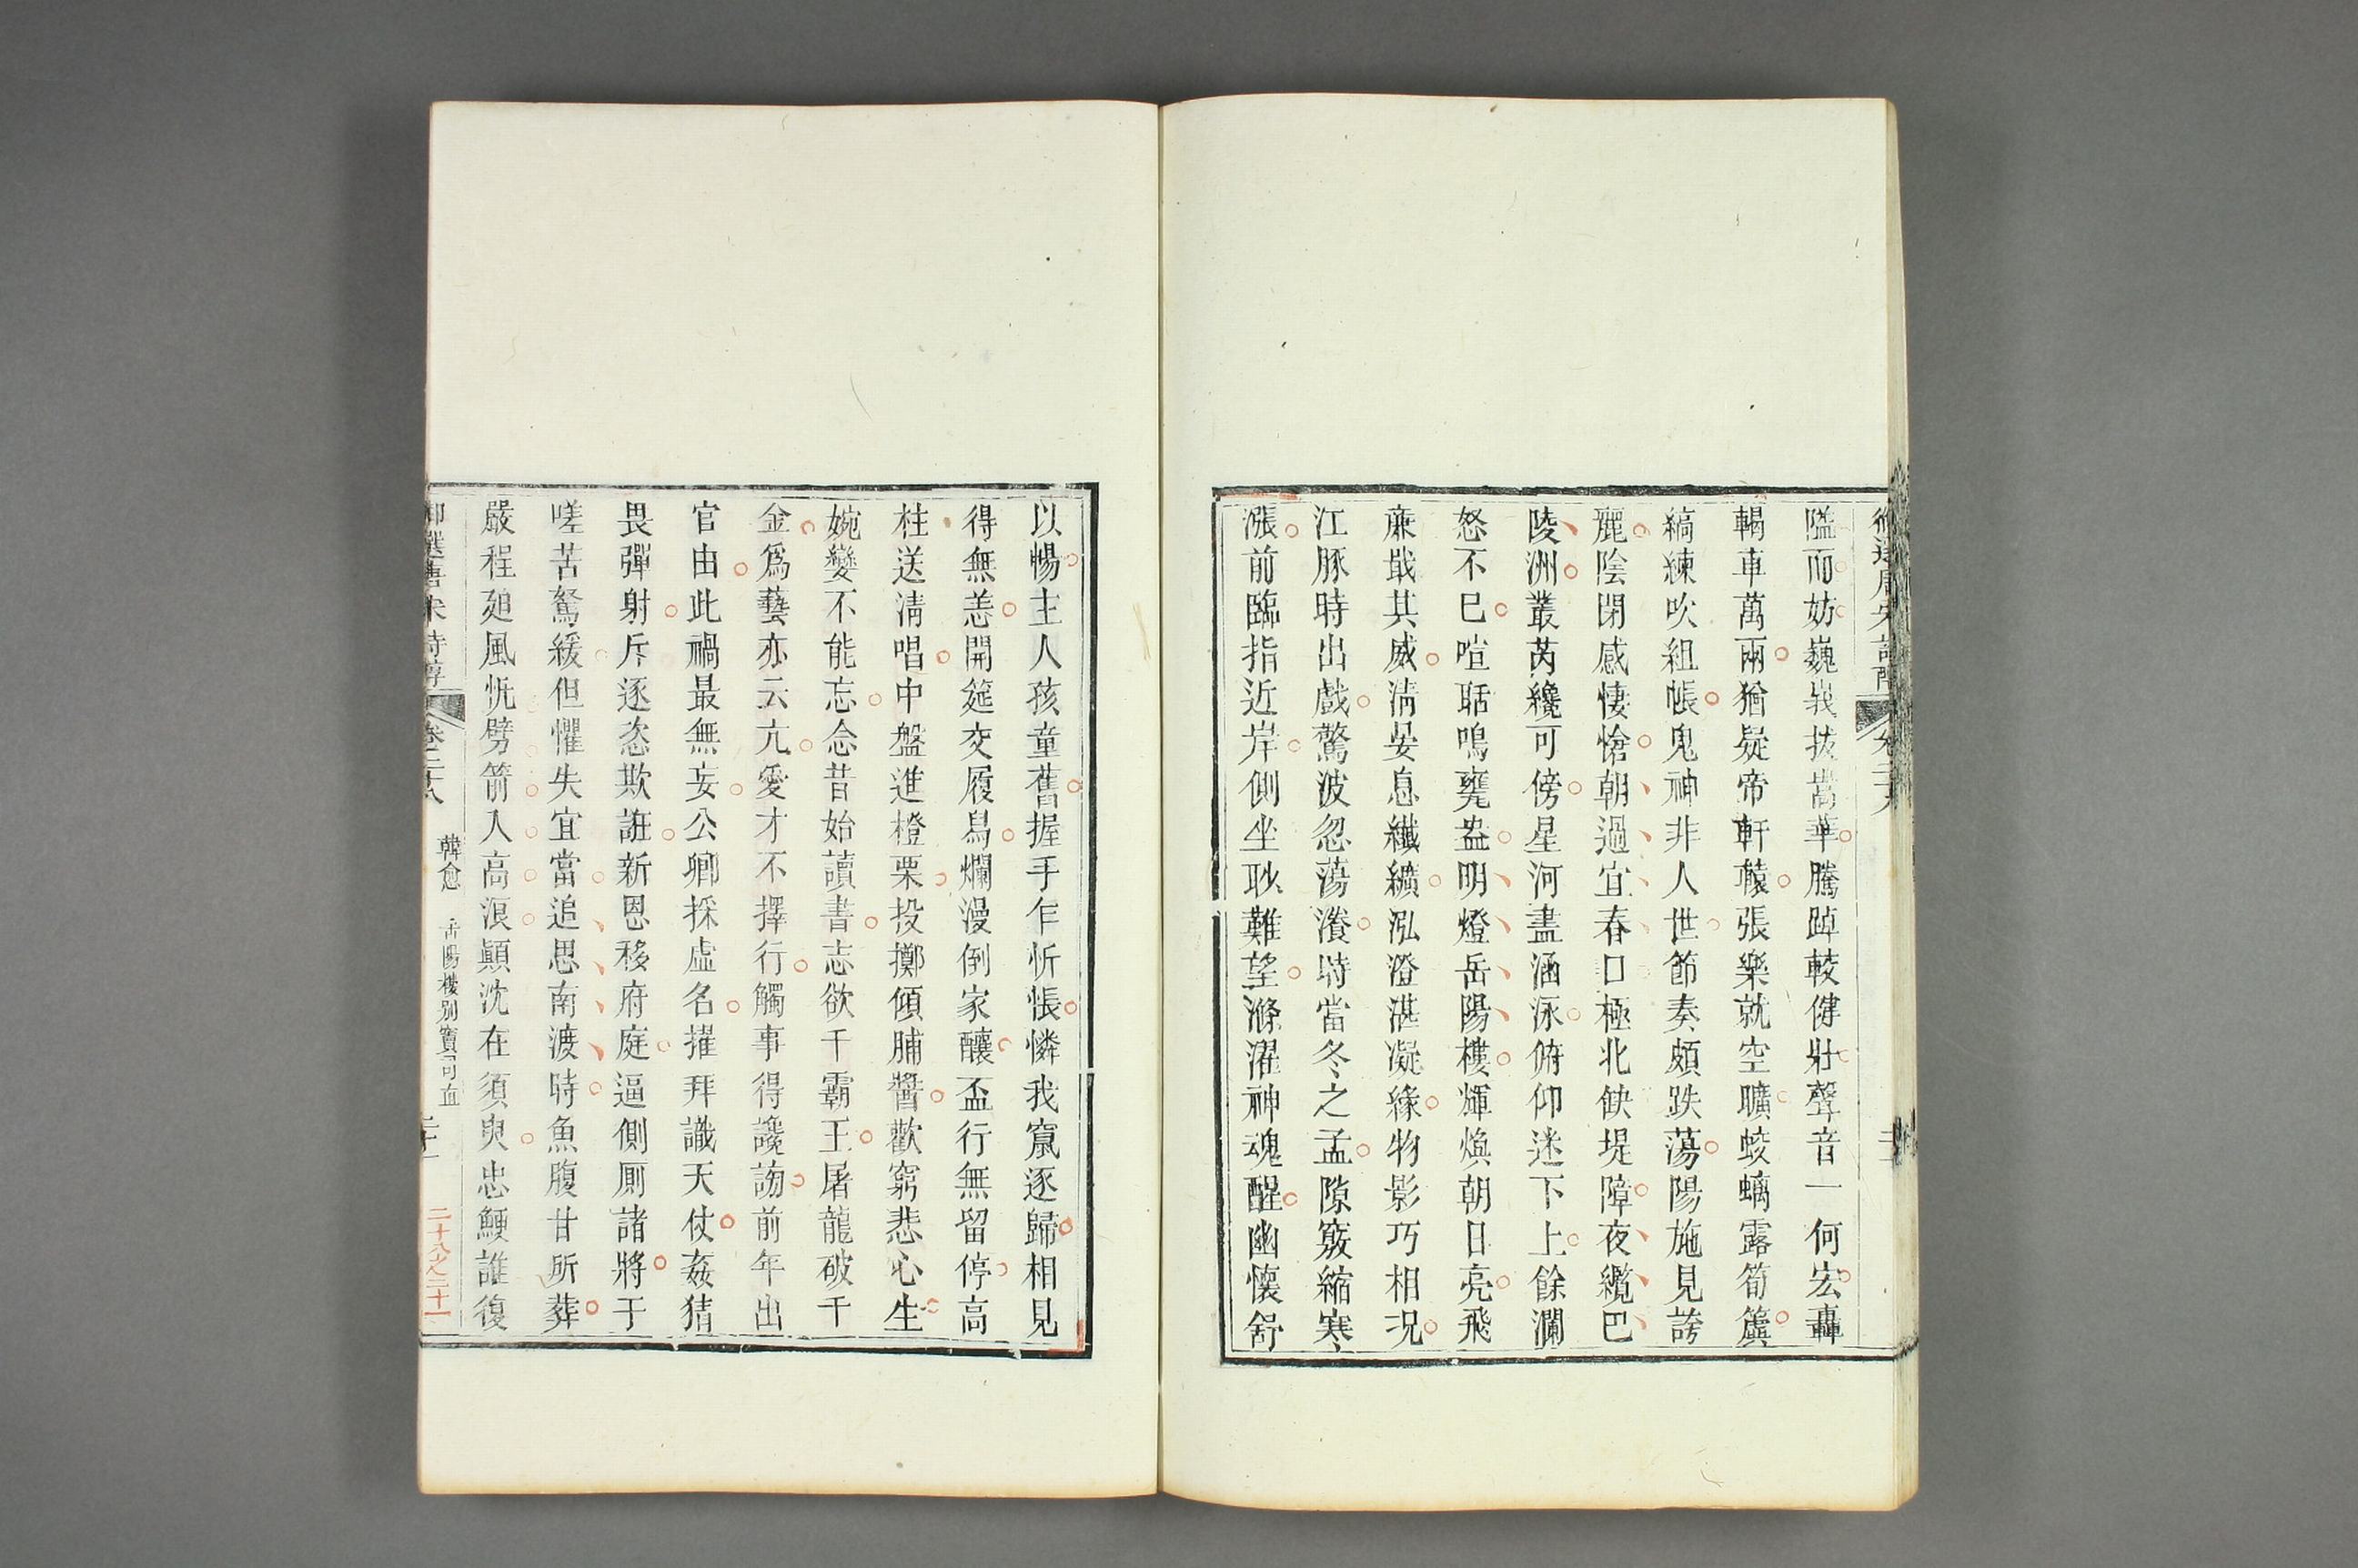 隘而妨巍峩拔嵩華騰踔較健壯聲音一何宏轟
輵車萬兩猶疑帝軒轅張樂就空曠蛟螭露筍簴
縞練吹組帳鬼神非人世節奏頗跌蕩陽施見誇
麗陰閉感悽愴朝過宜春口極北缺堤障夜纜巴
陵洲叢芮纔可傍星河盡涵泳俯仰迷下上餘瀾
怒不已喧聒鳴甕盎明燈岳陽樓輝煥朝日亮飛
廉戢其威清晏息纖纊泓澄湛凝緣物影巧相况
江豚時出戲驚波忽蕩瀁時當冬之孟隙竅縮寒
漲前臨指近岸側坐耿難望滌濯神魂醒幽懷舒
以暢主人孩童舊握手乍忻悵憐我竄逐歸相見
得無恙開筵交履舄爛漫倒家釀盃行無留停高
柱送清唱中盤進橙栗投擲傾脯醬歡窮悲心生
婉孌不能忘念昔始讀書志欲干霸王屠龍破千
金爲藝亦云亢愛才不擇行觸事得讒謗前年出
官由此禍最無妄公卿採虛名擢拜識天仗姦猜
畏彈射斥逐恣欺誑新恩移府庭逼側厠諸將于
嗟苦駑緩但懼失宜當追思南渡時魚腹甘所葬
嚴程廹風帆劈箭入高浪顛沈在須臾忠鯁誰復
御選唐宋詩醇 卷二十八 韓愈 岳陽樓別竇司直